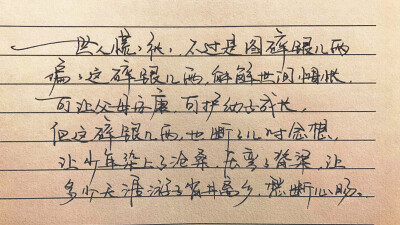 世人慌慌张张，不过是图碎银几两
偏偏这碎银几两，能解世间惆怅
可让父母安康，可护幼子成长
但这碎银几两，也断了儿时念想，
让少年染上了沧桑，压弯了脊梁，让
多少天涯游子背井离乡，愁断心肠。